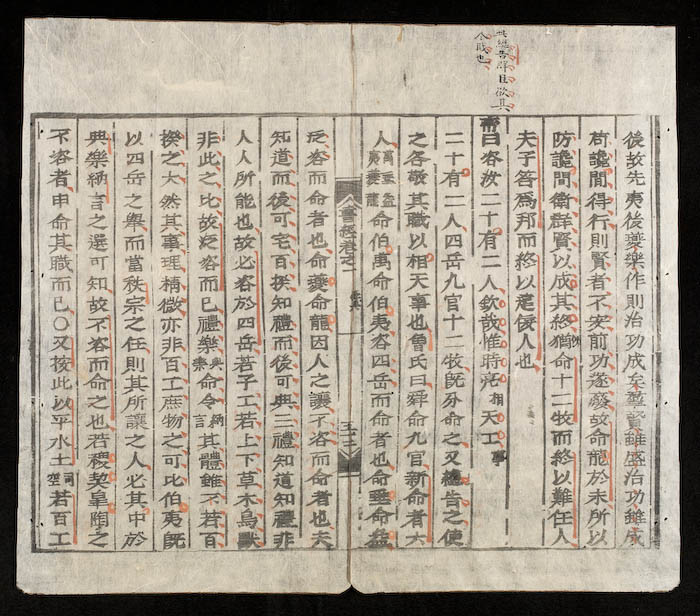 總告群臣欲其
後故先夷後夔樂作則治功成矣羣賢雖盛治功雖成
苟讒間得行則賢者不安前功遂廢故命龍於末所以
防讒間衛群賢以成其終猶命十二牧而終以難任人
夫子答爲邦而終以遠佞人也
帝曰咨汝二十有二人欽哉惟時亮相天工事
二十有二人四岳九官十二牧旣分命之又總告之使
之各敬其職以相天事也曾氏曰舜命九官新命者六
人禹垂益夷夔龍命伯禹命伯夷咨四岳而命者也命垂命益
書經卷之一
泛咨而命者也命夔命龍因人之讓不咨而命者也夫
知道而後可宅百揆知禮而後可典三禮知道知禮非
人人所能也故必咨於四岳若予工若上下草木鳥獸
非此之比故泛咨而已禮樂典命令納言其體雖不若百
揆之大然其事理精微亦非百工庶物之可比伯夷旣
以四岳之舉而當秩宗之任則其所讓之人必其中於
典樂納言之選可知故不咨而命之也若稷契臯陶之
不咨者申命其職而已○又按此以平水土司空若百工